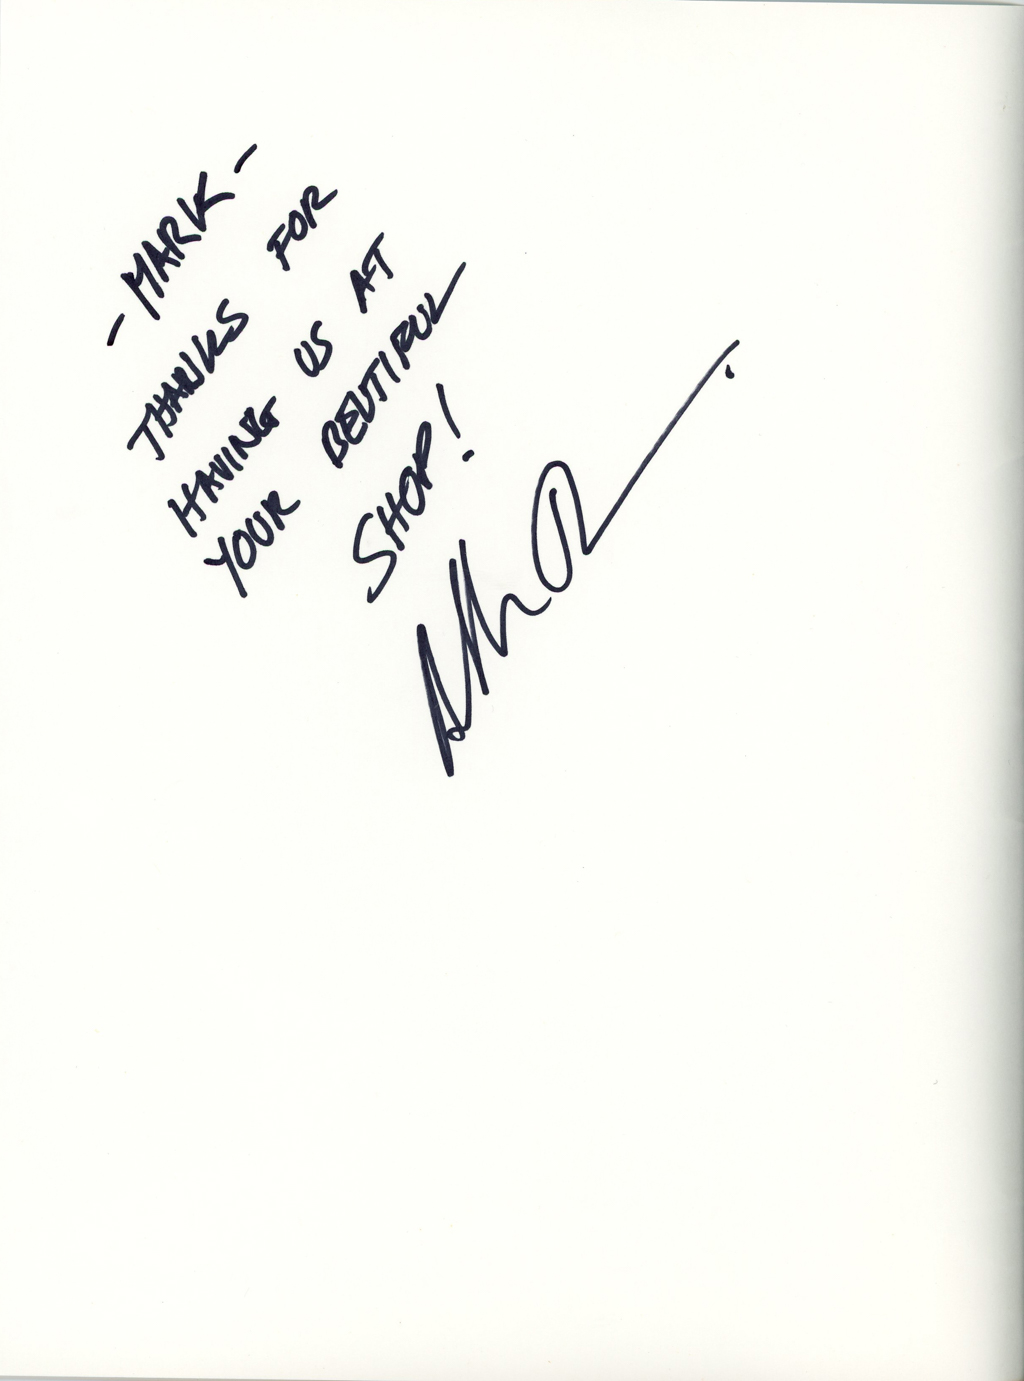 - MARK -
THANKS FOR
HAVING US AT
YOUR BEUTIFUL
SHOP!